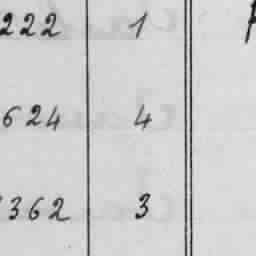 222 1
624 4
362 3